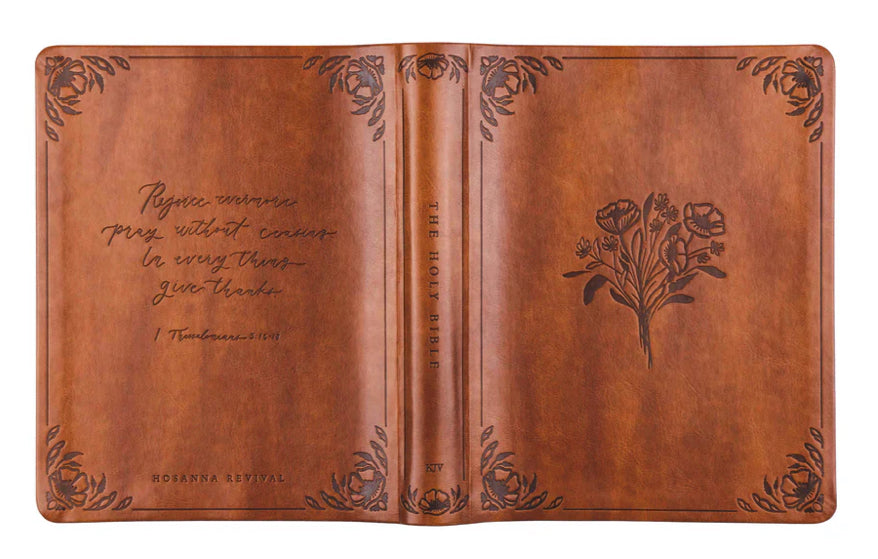 Rejoice evermore
pray without ceasing
In every thing
give thanks
1 Thessalonians 5:16-18
HOSANNA REVIVAL
THE HOLY BIBLE
KJV